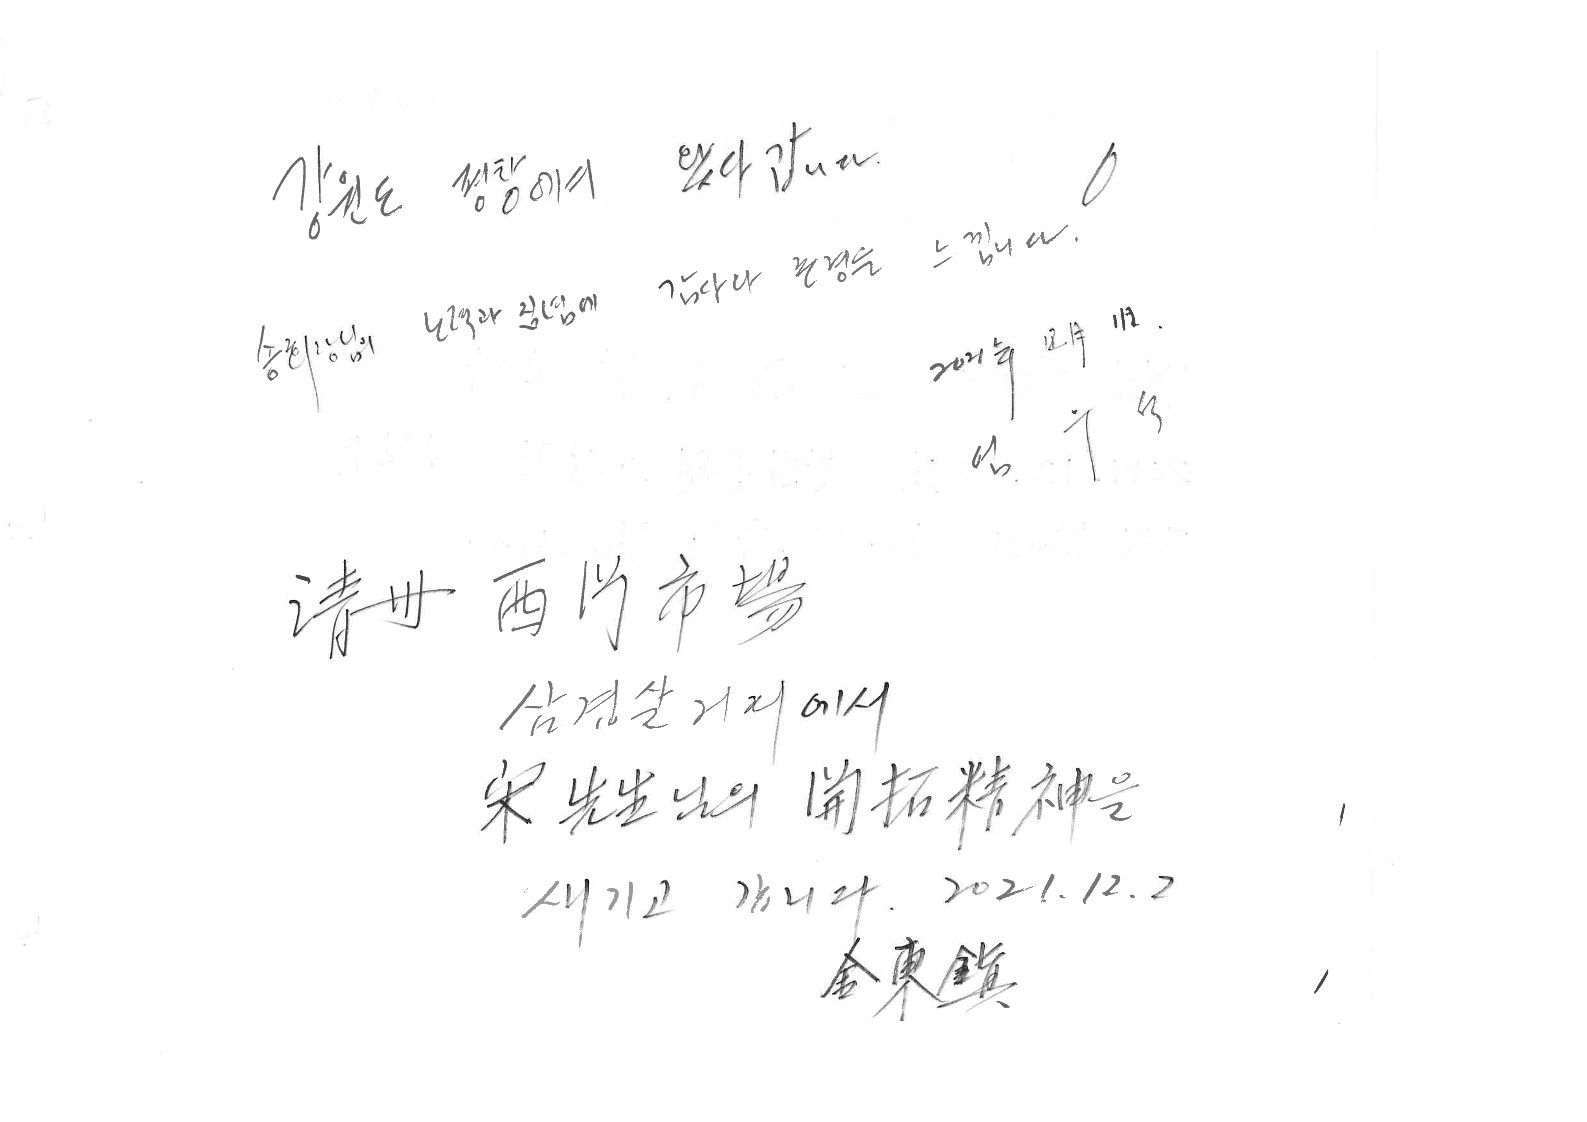 강원도 평창에서 왔다 갑니다.
송회장님의 노력과 집념에 감사와 존경을 느낍니다.
2021年 12月 1日.
엄 우
清州 西門 市場
삼겹살 거리에서
宋 先生님의 開拓精神을
새기고 갑니다. 2021.12.2
金東鎭